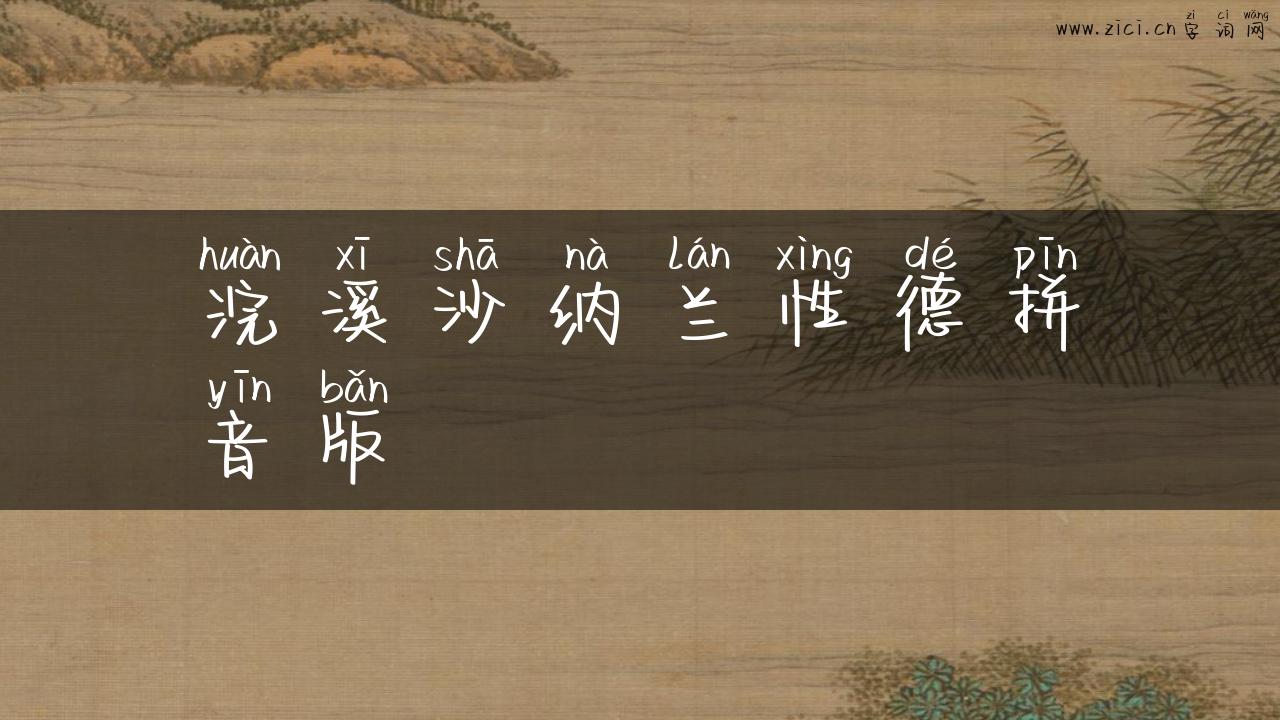 zì cí wǎng
www.zici.cn 字词网
huàn xī shā nà lán xìng dé pīn
浣溪沙纳兰性德拼
yīn bǎn
音版